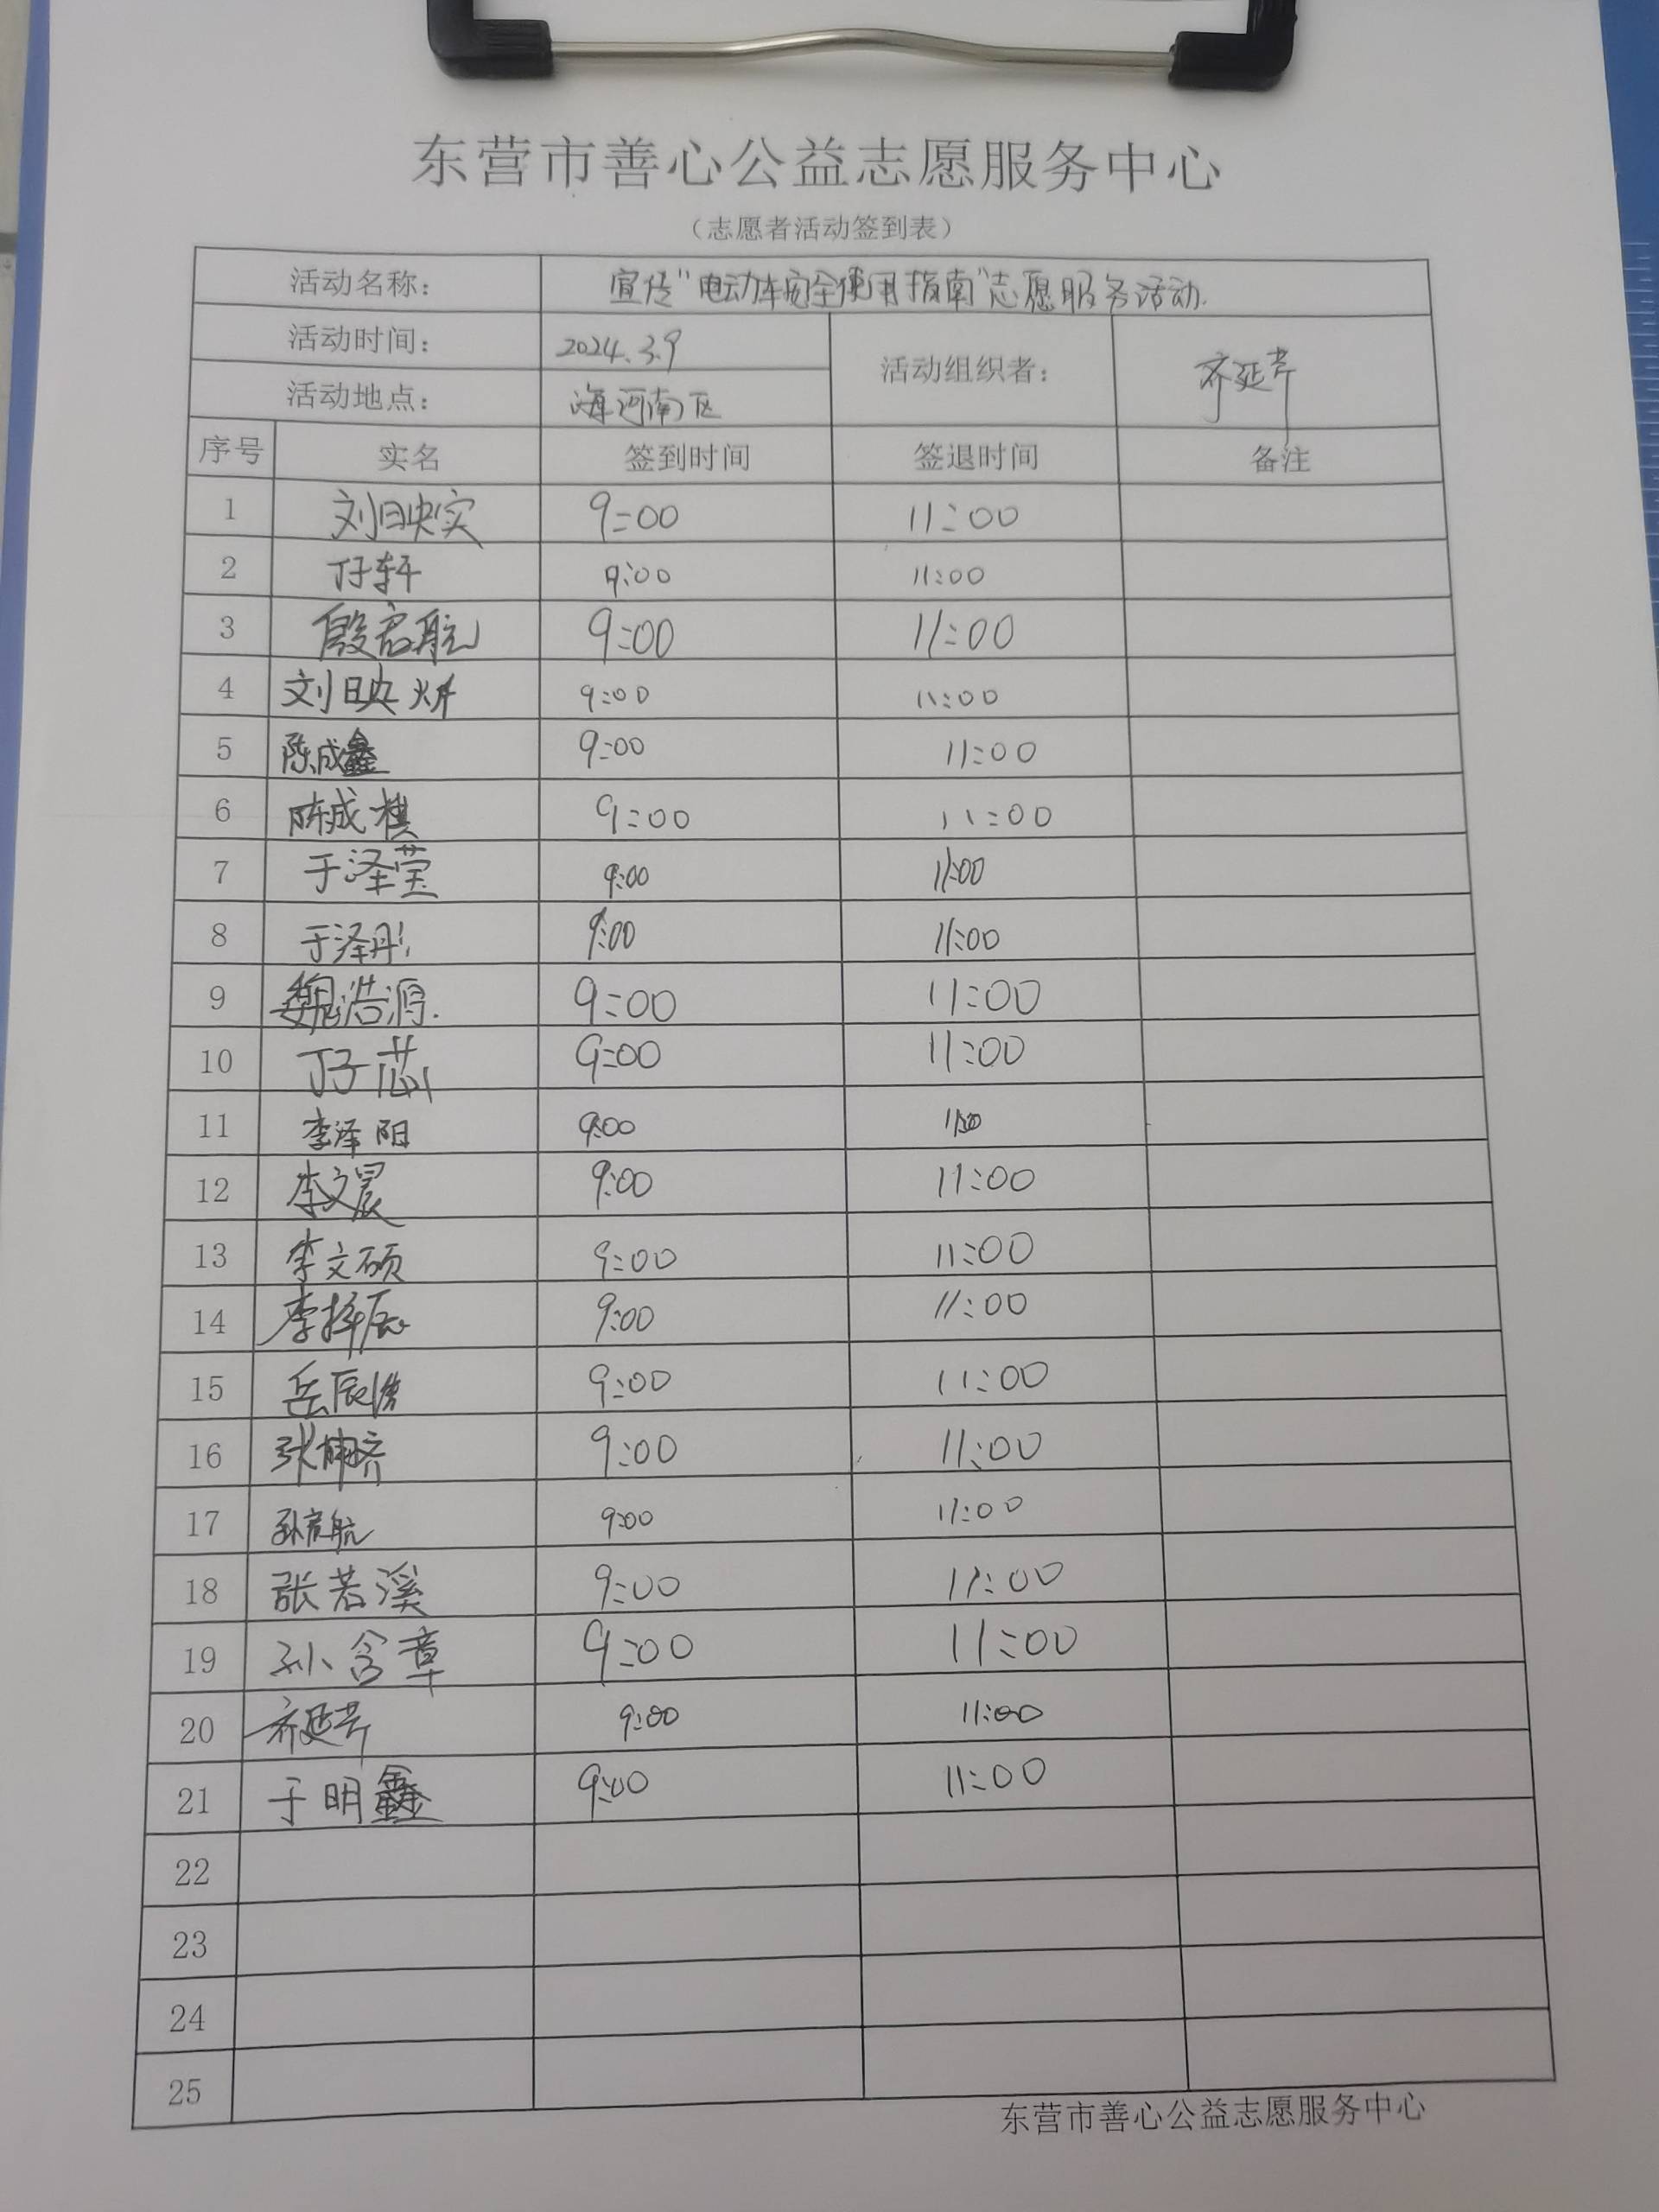 东营市善心公益志愿服务中心
（志愿者活动签到表）
活动名称： 宣传“电动车安全使用指南”志愿服务活动.
活动时间： 2024.3.9 活动组织者： 齐延芹
活动地点： 海河南区
序号 实名 签到时间 签退时间 备注
1 刘映实 9:00 11:00
2 仔轩 9:00 11:00
3 殷启航 9:00 11:00
4 刘映 9:00 11:00
5 陈成鑫 9:00 11:00
6 陈成棋 9:00 11:00
7 于泽莹 9:00 11:00
8 于泽彤 9:00 11:00
9 魏浩源. 9:00 11:00
10 丁子芯 9:00 11:00
11 李泽阳 9:00 11:00
12 李文晨 9:00 11:00
13 李文硕 9:00 11:00
14 李择辰 9:00 11:00
15 岳辰 9:00 11:00
16 张 9:00 11:00
17 孙航 9:00 11:00
18 张若溪 9:00 11:00
19 孙含章 9:00 11:00
20 齐延芹 9:00 11:00
21 于明鑫 9:00 11:00
22
23
24
25
东营市善心公益志愿服务中心